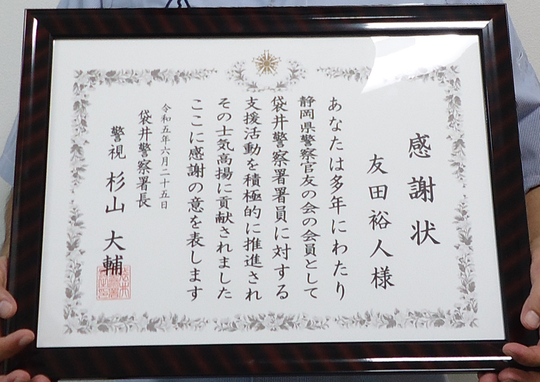 感謝状
友田裕人様
あなたは多年にわたり
静岡県警察官友の会の会員として
袋井警察署署員に対する
支援活動を積極的に推進され
その士気高揚に貢献されました
ここに感謝の意を表します
令和五年六月二十五日
袋井警察署長
警視 杉山大輔